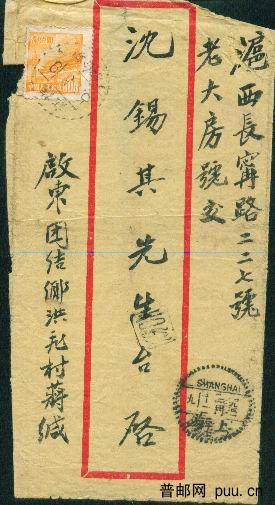 滬西長甯路二二七號
老大房號交
沈錫其先生台啓
啟東团结鄉洪
村蔣缄
SHANGHAI
上海
普邮网 puu.cn